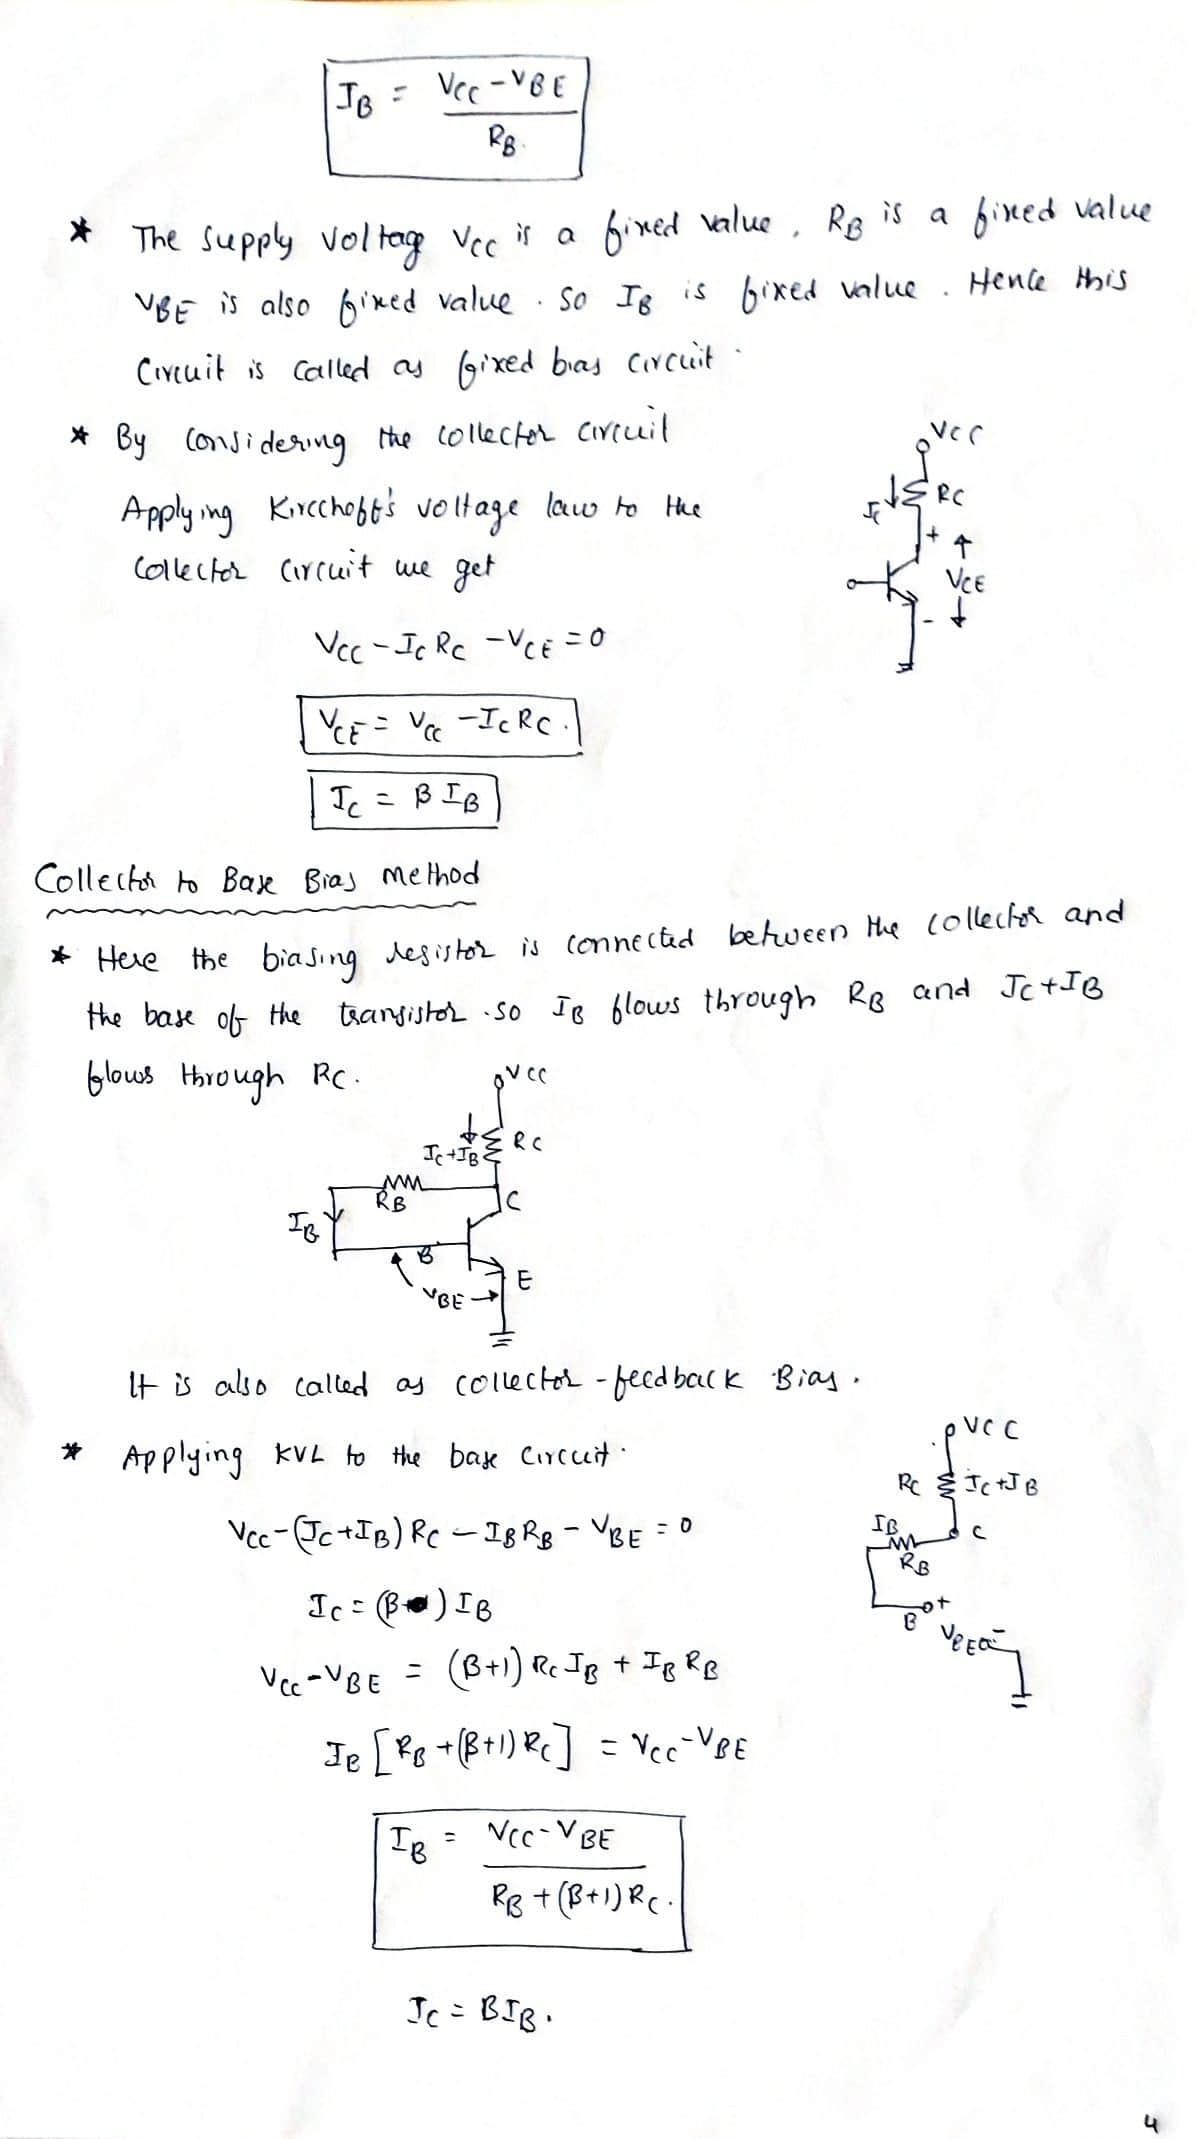 IB = VCC - VBE
RB.
* The supply voltag VCC is a fixed value, RB is a fixed value
VBE is also fixed value. so IB is fixed value. Hence this
Circuit is called as fixed bias circuit.
* By considering the collector circuit
Applying Kircchoff's voltage law to the
Collector circuit we get
VCC
IC
RC
+
VCE
-
VCC - IC RC - VCE = 0
VCE = VCC - IC RC.
IC = β IB
Collector to Base Bias method
* Here the biasing resistor is connected between the collector and
the base of the transistor. so IB flows through RB and IC+IB
flows through RC.
VCC
IC+IB
RC
RB
C
IB
B
E
VBE
It is also called as collector - feedback Bias.
* Applying KVL to the base Circuit.
VCC
RC
IC+IB
IB
C
RB
+
B
VBE
-
VCC - (IC+IB) RC - IB RB - VBE = 0
IC = (β ) IB
VCC - VBE = (β+1) RC IB + IB RB
IB [RB + (β+1) RC] = VCC - VBE
IB = VCC - VBE
RB + (β+1) RC.
IC = βIB.
4